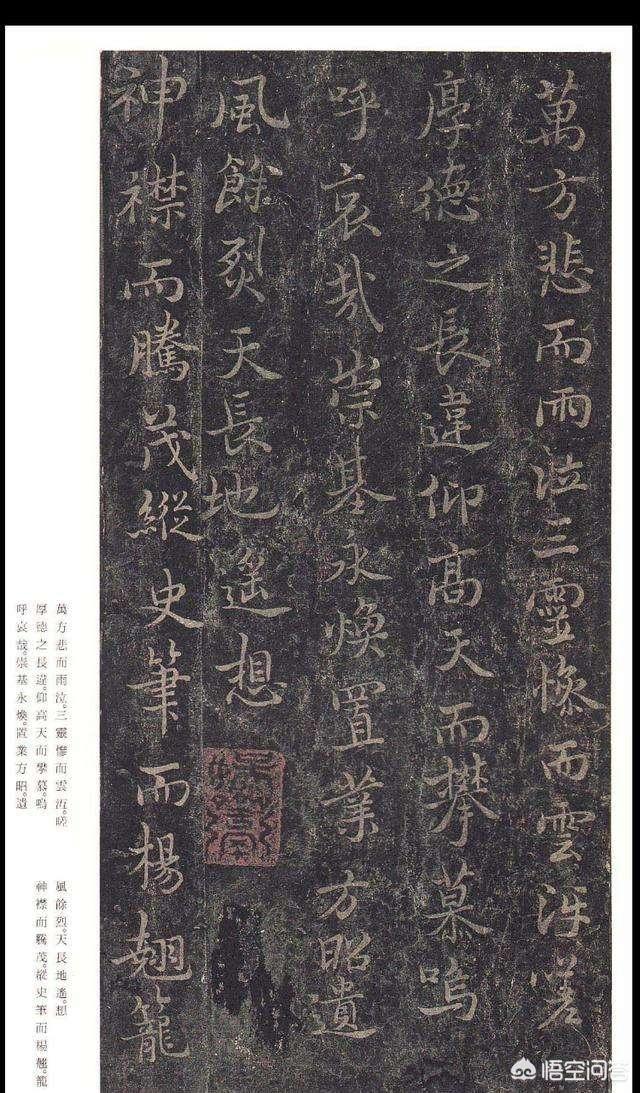 萬方悲而雨泣三靈慘而雲冱嗟
厚德之長違仰高天而攀慕嗚
呼哀哉崇基永煥置業方昭遺
風餘烈天長地遙想
神襟而騰茂縱史筆而楊翹籠
萬方悲而雨泣。三靈慘而雲冱。
厚德之長違。仰高天而攀慕。嗚
呼哀哉。崇基永煥。置業方昭。遺
風餘烈。天長地遙。想
神襟而騰茂。縱史筆而楊翹。籠
悟空问答